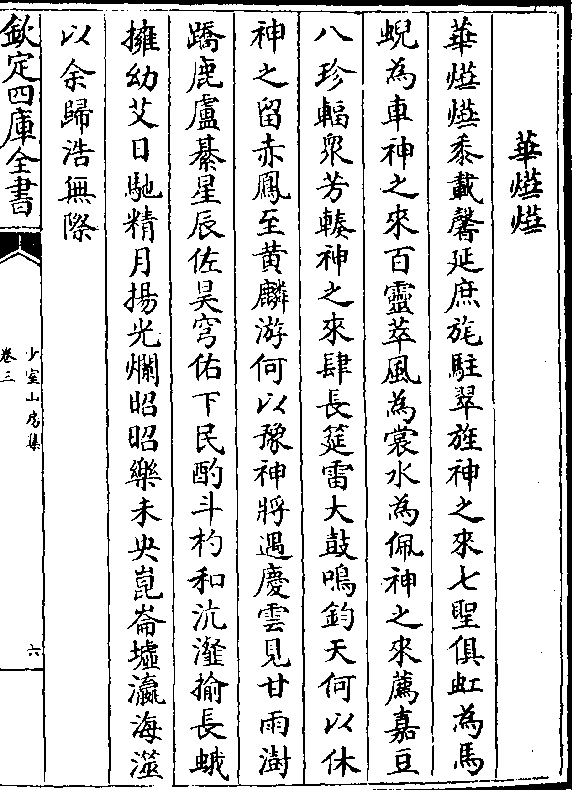 華爗爗
華爗爗黍載馨延庶旄駐翠旌神之來七聖俱虹為馬
蜺為車神之來百靈萃風為裳水為佩神之來薦嘉豆
八珍輻衆芳輳神之來肆長筵雷大鼓鳴鈞天何以休
神之留赤鳳至黄麟游何以豫神將遇慶雲見甘雨澍
蹻鹿盧綦星辰佐昊穹佑下民酌斗杓和沆瀣揄長蛾
擁幼艾日馳精月揚光爛昭昭樂未央崑崙墟瀛海澨
以余歸浩無際
欽定四庫全書
少室山房集
卷三
六